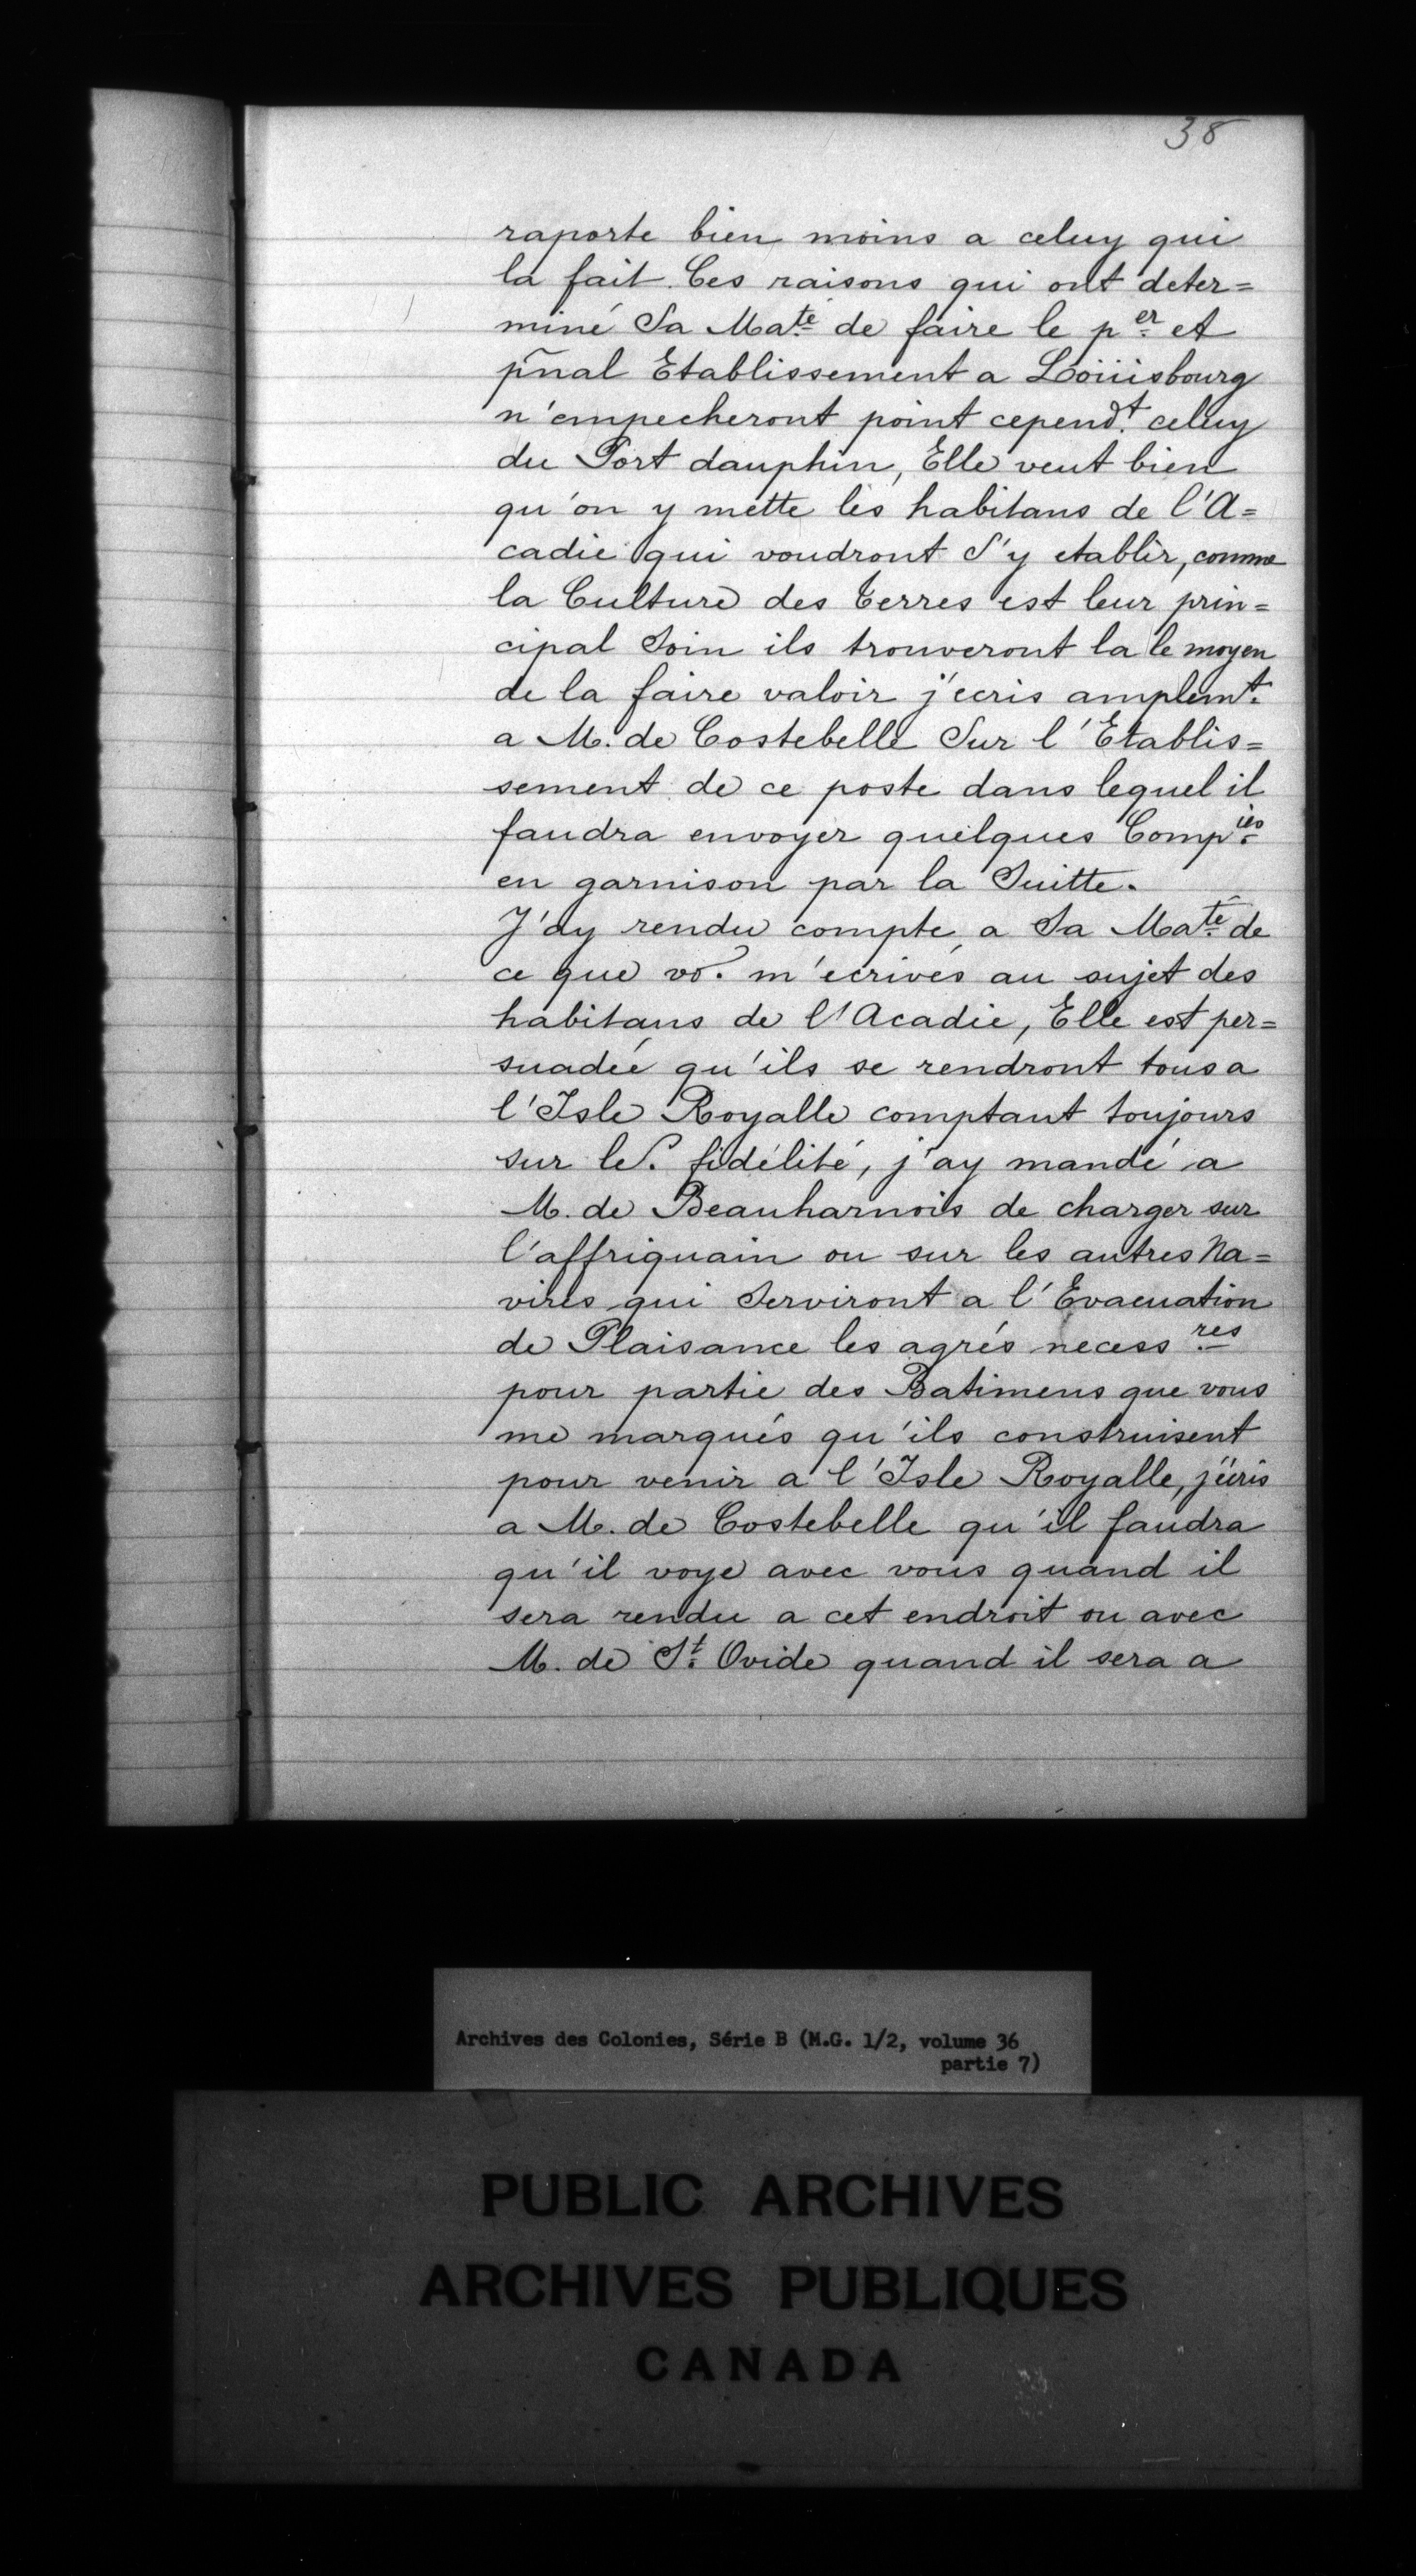 38
raporte bien moins a celuy qui
la fait. Ces raisons qui ont deter=
miné Sa Maté de faire le per et
pñal Etablissement a Loüisbourg
n'empecheront point cependt celuy
du Port dauphin, Elle veut bien
qu'on y mette les habitans de l'A=
cadie qui voudront S'y etablir, comme
la Culture des Terres est leur prin=
cipal Soin ils trouveront la le moyen
de la faire valoir j'ecris amplemt
a M. de Costebelle Sur l'Etablis=
sement de ce poste dans lequel il
faudra envoyer quelques Compies
en garnison par la Suitte.
J'ay rendu compte a Sa Maté de
ce que vo. m'ecrivés au sujet des
habitans de l'Acadie, Elle est per=
suadée qu'ils se rendront tous a
l'Isle Royalle comptant toujours
sur le fidélité, j'ay mandé a
M. de Beauharnois de charger sur
l'affriquain ou sur les autres Na=
vires qui Serviront a l'Evacuation
de Plaisance les agrés necessres
pour partie des Batimens que vous
me marqués qu'ils construisent
pour venir a l'Isle Royalle, j'écris
a M. de Costebelle qu'il faudra
qu'il voye avec vous quand il
sera rendu a cet endroit ou avec
M. de St Ovide quand il sera a
Archives des Colonies, Série B (M.G. 1/2, volume 36
partie 7)
PUBLIC ARCHIVES
ARCHIVES PUBLIQUES
CANADA